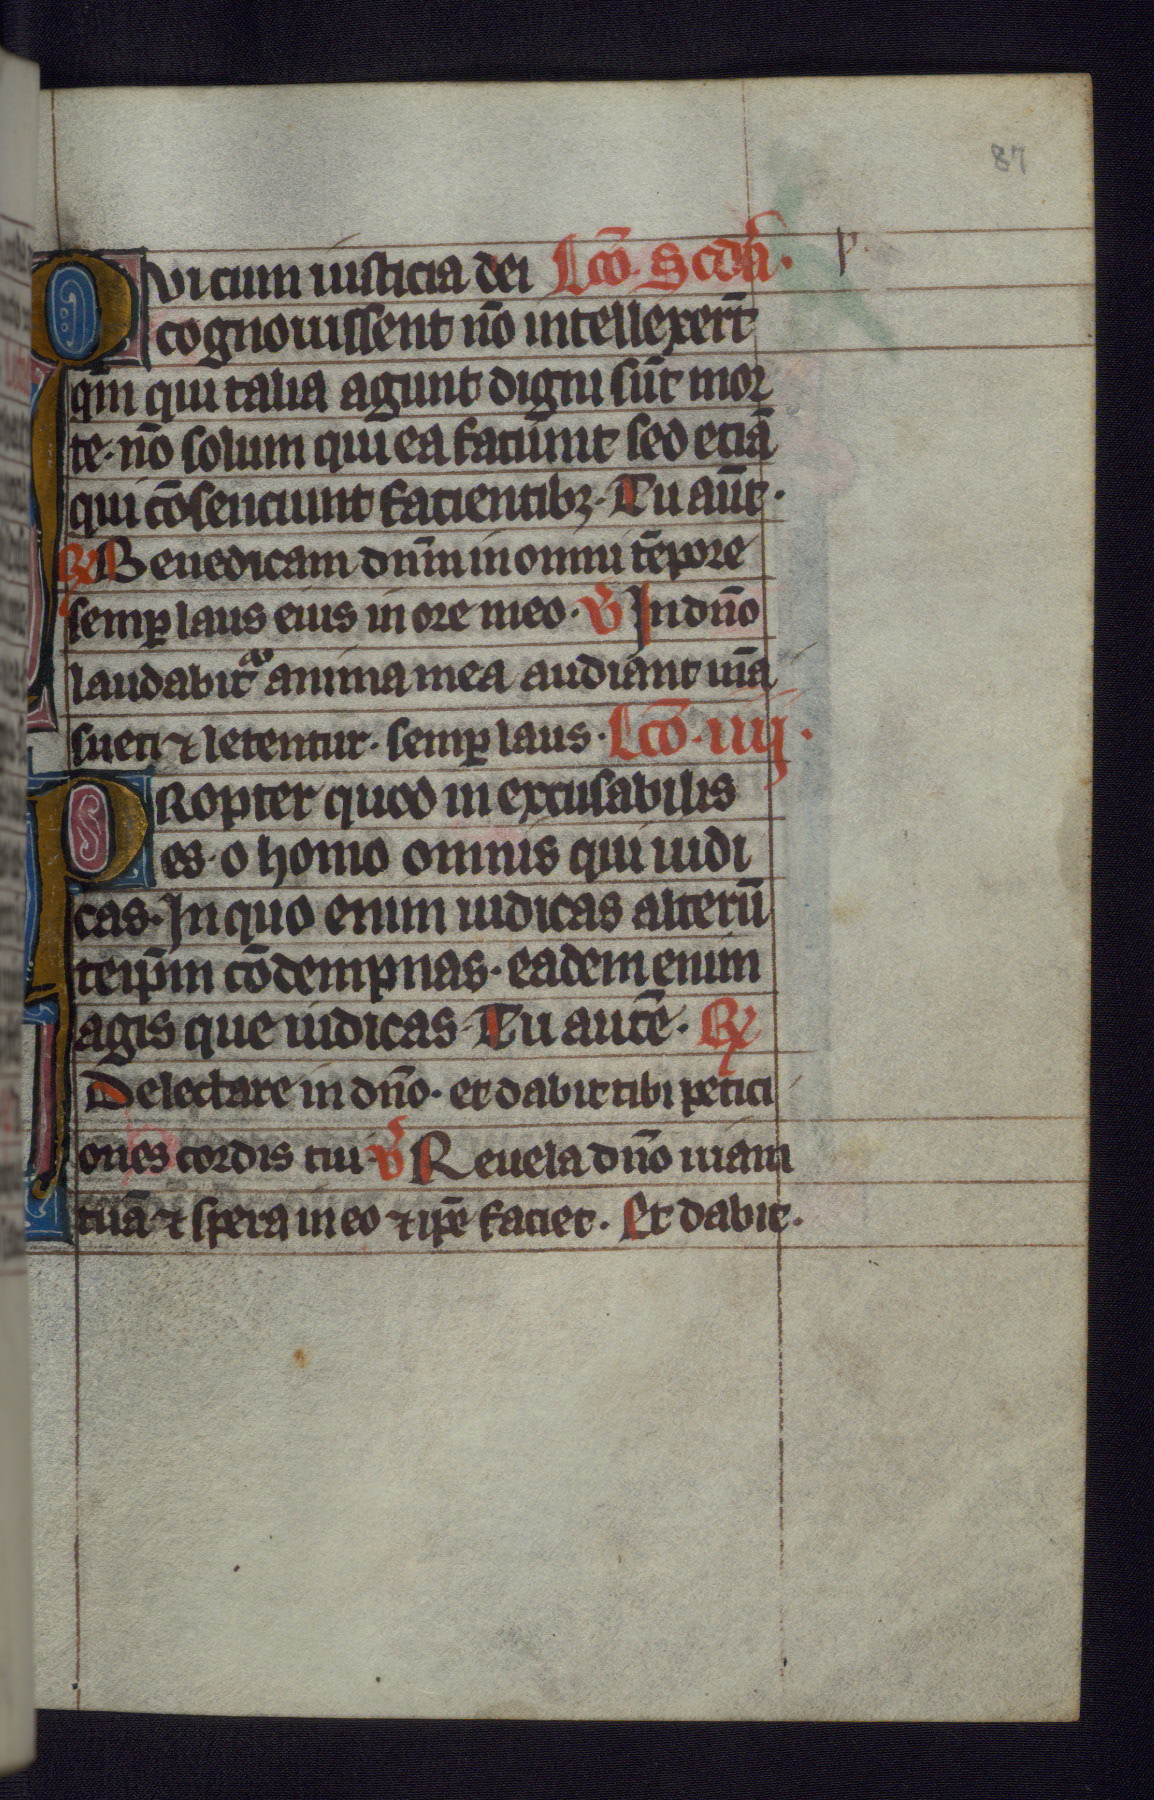 87
Qui cum iusticia dei Lcō. Scdā. p.
cognouissent nō intellexerūt
qm̄ qui talia agunt digni sūt mor
te. nō solum qui ea faciunt sed eciā
qui cōsenciunt facientibꝫ. Tu aūt.
℟ Benedicam dn̄m in omni tēpore
semꝑ laus eius in ore meo. ℣ In dn̄o
laudabitᵃ anima mea audiant mā
sueti ⁊ letentur. semꝑ laus. Lcō. iiij.
PRopter quod in excusabilis
es. o homo omnis qui iudi
cas. In quo enim iudicas alterū
teip̄m cōdempnas. eadem enim
agis que iudicas. Tu autē. ℟
Delectare in dn̄o. et dabit tibi petici
ones cordis tui. ℣ Reuela dn̄o uiam
tuā ⁊ spera in eo ⁊ ip̄e faciet. Et dabit.